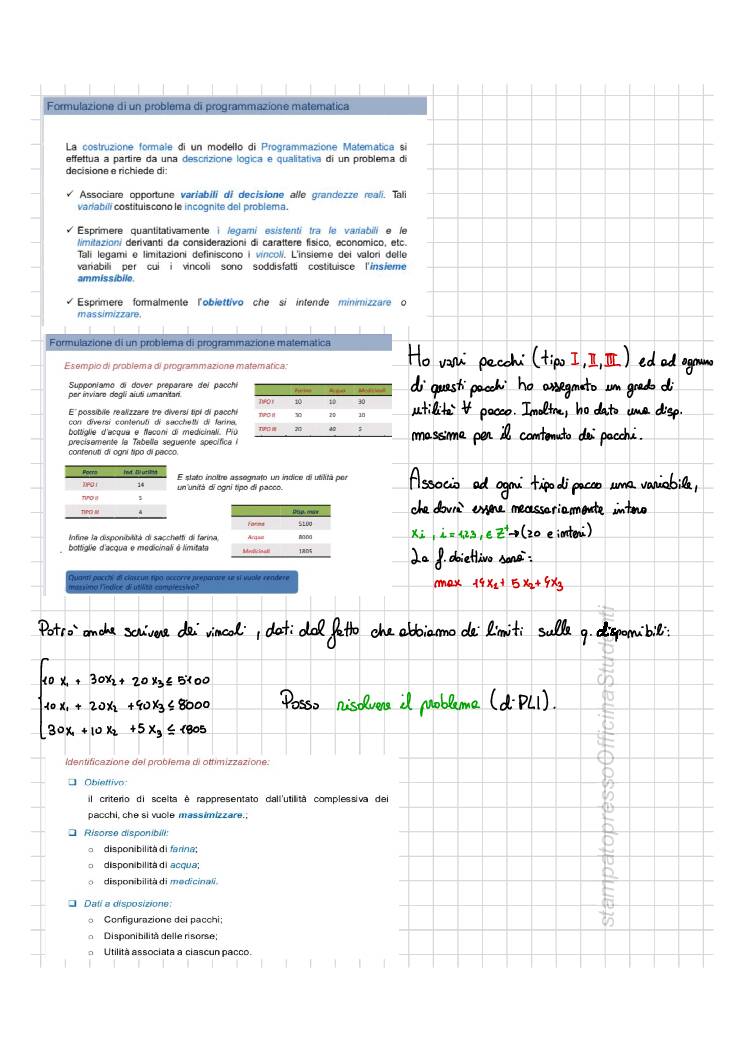 Formulazione di un problema di programmazione matematica
La costruzione formale di un modello di Programmazione Matematica si
effettua a partire da una descrizione logica e qualitativa di un problema di
decisione e richiede di:
✓ Associare opportune variabili di decisione alle grandezze reali. Tali
variabili costituiscono le incognite del problema.
✓ Esprimere quantitativamente i legami esistenti tra le variabili e le
limitazioni derivanti da considerazioni di carattere fisico, economico, etc.
Tali legami e limitazioni definiscono i vincoli. L'insieme dei valori delle
variabili per cui i vincoli sono soddisfatti costituisce l'insieme
ammissibile.
✓ Esprimere formalmente l'obiettivo che si intende minimizzare o
massimizzare.
Formulazione di un problema di programmazione matematica
Esempio di problema di programmazione matematica:
Supponiamo di dover preparare dei pacchi
per inviare degli aiuti umanitari.
E' possibile realizzare tre diversi tipi di pacchi
con diversi contenuti di sacchetti di farina,
bottiglie d'acqua e flaconi di medicinali. Più
precisamente la Tabella seguente specifica i
contenuti di ogni tipo di pacco.
Farina Acqua Medicinali
TIPO I 10 10 30
TIPO II 30 20 10
TIPO III 20 40 5
Pacco Ind. Di utilità
TIPO I 14
TIPO II 5
TIPO III 4
E stato inoltre assegnato un indice di utilità per
un'unità di ogni tipo di pacco.
Disp. max
Farina 5100
Acqua 8000
Medicinali 1805
Infine la disponibilità di sacchetti di farina,
bottiglie d'acqua e medicinali è limitata
Quanti pacchi di ciascun tipo occorre preparare se si vuole rendere
massimo l'indice di utilità complessivo?
Ho vari pacchi (tipo I, II, III) ed ad ognuno
di questi pacchi ho assegnato un grado di
utilità ∀ pacco. Inoltre, ho dato una disp.
massima per il contenuto dei pacchi.
Associo ad ogni tipo di pacco una variabile,
che dovrà essere necessariamente intera
xi, i=1,2,3, ∈ Z⁺→(≥0 e interi)
La f. obiettivo sarà:
max 14x₁+ 5x₂+4x₃
Potrò anche scrivere dei vincoli, dati dal fatto che abbiamo dei limiti sulle q. disponibili:
10 x₁ + 30x₂+ 20 x₃ ≤ 5100
10 x₁ + 20x₂ +40x₃ ≤ 8000
30x₁ +10 x₂ +5 x₃ ≤ 1805
Posso risolvere il problema (di PLI).
Identificazione del problema di ottimizzazione:
❑ Obiettivo:
il criterio di scelta è rappresentato dall'utilità complessiva dei
pacchi, che si vuole massimizzare.;
❑ Risorse disponibili:
o disponibilità di farina;
o disponibilità di acqua;
o disponibilità di medicinali.
❑ Dati a disposizione:
o Configurazione dei pacchi;
o Disponibilità delle risorse;
o Utilità associata a ciascun pacco.
stampatopressoOfficinaStudenti